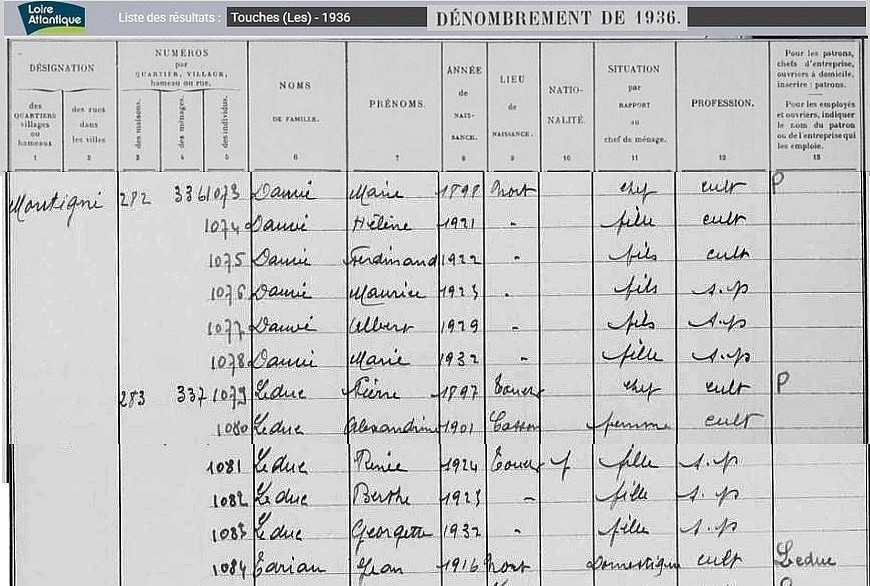 Loire Atlantique
Liste des résultats : Touches (Les) - 1936
DÉNOMBREMENT DE 1936.
DÉSIGNATION
des QUARTIERS villages ou hameaux
1
des rues dans les villes
2
NUMÉROS par QUARTIER, VILLAGE, hameau ou rue.
des maisons.
3
des ménages.
4
des individus.
5
NOMS DE FAMILLE.
6
PRÉNOMS.
7
ANNÉE de NAIS- SANCE.
8
LIEU de NAISSANCE.
9
NATIO- NALITÉ.
10
SITUATION par RAPPORT au chef de ménage.
11
PROFESSION.
12
Pour les patrons, chefs d'entreprise, ouvriers à domicile, inscrire : patrons.
Pour les employés et ouvriers, indiquer le nom du patron ou de l'entreprise qui les emploie.
13
Montigné 282 336 1073 Marie 1898 Nort chef cult P
1074 Hélène 1921 " fille cult
1075 Ferdinand 1922 " fils cult
1076 Maurice " fils s.p
1077 Albert 1929 " fils s.p
1078 Marie 1932 " fille s.p
283 337 1079 Leduc Pierre 1897 Touches chef cult P
1080 Leduc Alexandrine 1901 Casson femme cult
1081 Leduc Renée 1924 Touches f fille s.p
1082 Leduc Berthe " fille s.p
1083 Leduc Georgette 1932 " fille s.p
1084 Jean 1916 Nort Domestique cult Leduc